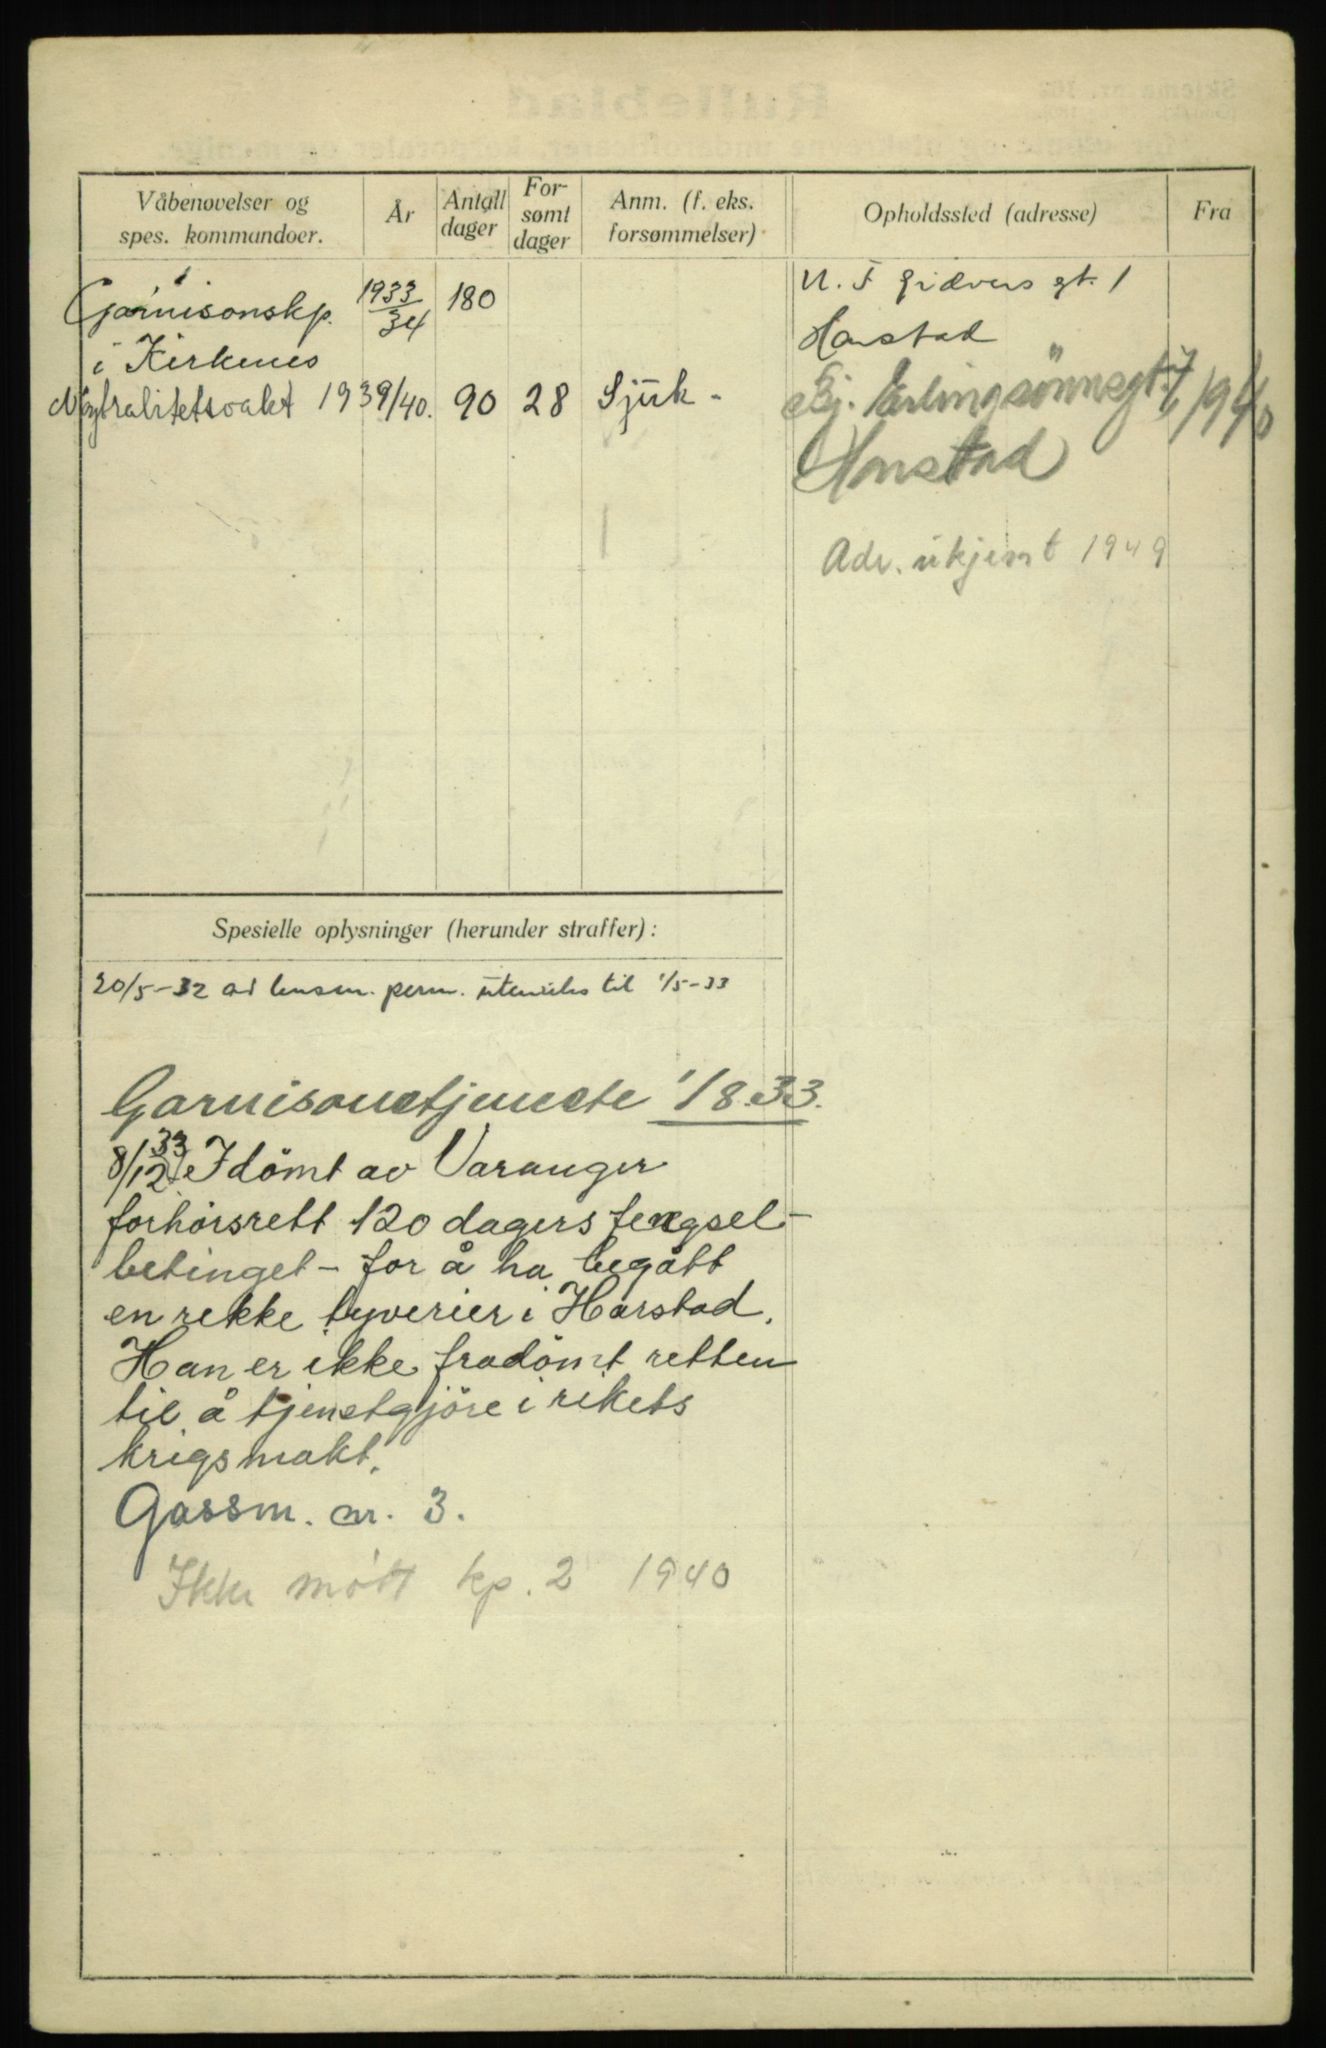 Våbenøvelser og
spes. kommandoer.
År
Antall
dager
For-
sømt
dager
Anm. (f. eks.
forsømmelser)
Opholdssted (adresse)
Fra
Garnisonskp. 1933/34 180
i Kirkenes
Nøytralitetsvakt 1939/40. 90 28 Sjuk -
gt. 1
Harstad
Ej. Erlingsönnsgt. 7 1940
Harstad
Adr. ukjent 1949
Spesielle oplysninger (herunder straffer):
20/5-32 av lensm. perm. utenriks til 1/5-33
Garnisonstjeneste 1/8.33.
8/12 33 Idömt av Varanger
forhörsrett 120 dagers fengsel -
betinget - for å ha begått
en rekke tyverier i Harstad.
Han er ikke fradömt retten
til å tjenestgjöre i rikets
krigsmakt.
Gassm. nr. 3.
Ikke mött kp. 2 1940